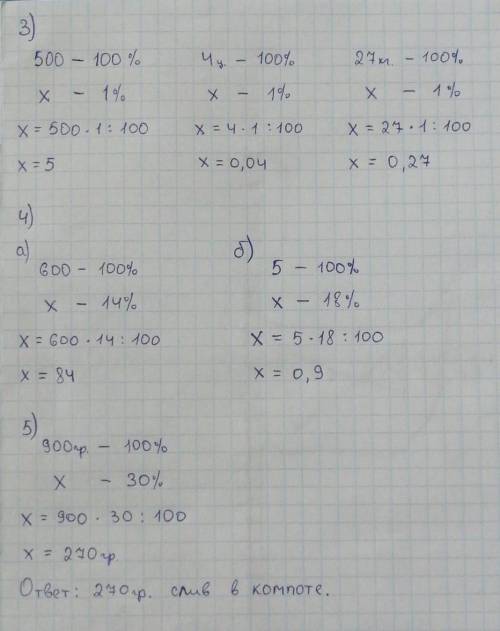 3)
500 – 100 %
x – 1%
x = 500 · 1 : 100
x = 5
4ц. – 100%
x – 1%
x = 4 · 1 : 100
x = 0,04
27кг. – 100%
x – 1%
x = 27 · 1 : 100
x = 0,27
4)
а)
600 – 100%
x – 14%
x = 600 · 14 : 100
x = 84
б)
5 – 100%
x – 18%
x = 5 · 18 : 100
x = 0,9
5)
900гр. – 100%
x – 30%
x = 900 · 30 : 100
x = 270гр.
Ответ: 270гр. слив в компоте.